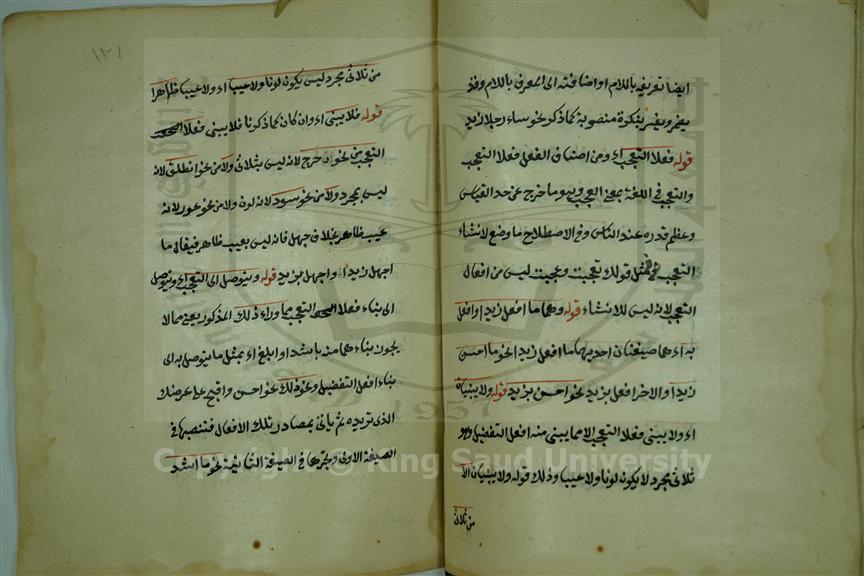 ايضا تعريفه باللام او اضافته الى المعرف باللام وقد
يضمر ويفسر بنكرة منصوبة كما ذكر نحو ساء رجلا زيد
قوله فعلا التعجب اه ومن اصناف الفعل فعلا التعجب
والتعجب في اللغة بمعنى العجب وهو ما خرج عن حد القياس
وعظم قدره عند الناس وفي الاصطلاح ما وضع لانشاء
التعجب فمثل قولك تعجبت وعجبت ليس من افعال
التعجب لانه ليس للانشاء قوله وهما ما افعل زيدا وافعل
به اه هما صيغتان احديهما ما افعل زيدا نحو ما احسن
زيدا والاخر افعل بزيد نحو احسن بزيد قوله ولا يبنيان
اه ولا يبنى فعلا التعجب الا مما يبنى منه افعل التفضيل وهو
ثلاثى مجرد لا يكون لونا ولا عيبا وذلك قوله ولا يبنيان الا
من ثلاثى
١٢١
من ثلاثى مجرد ليس يكون لونا ولا عيبا اه ولا عيبا ظاهرا
قوله فلا يبنى اه وان كان كما ذكرنا فلا يبنى فعلا
التعجب من نحو خرج لانه ليس بثلاثى ولا من نحو انطلق لانه
ليس بمجرد ولا من نحو سود لانه لون ولا من نحو عور لانه
عيب ظاهر بخلاف جهل فانه ليس بعيب ظاهر فيقال ما
اجهل زيدا واجهل بزيد قوله ويتوصل الى التعجب اه ويتوصل
الى بناء فعلا التعجب مما وراء ذلك المذكور يعنى مما لا
يجوز بناءهما منه باشد وابلغ اه بمثل ما يتوصل به الى
بناء افعل التفضيل ونحو ذلك نحو احسن واقبح على غرضك
الذى تريده ثم ياتى بمصادر تلك الافعال فتنصبها فى
الصيغة الاولى وتجرها فى الصيغة الثانية نحو ما اشد
Copyright © King Saud University
1957